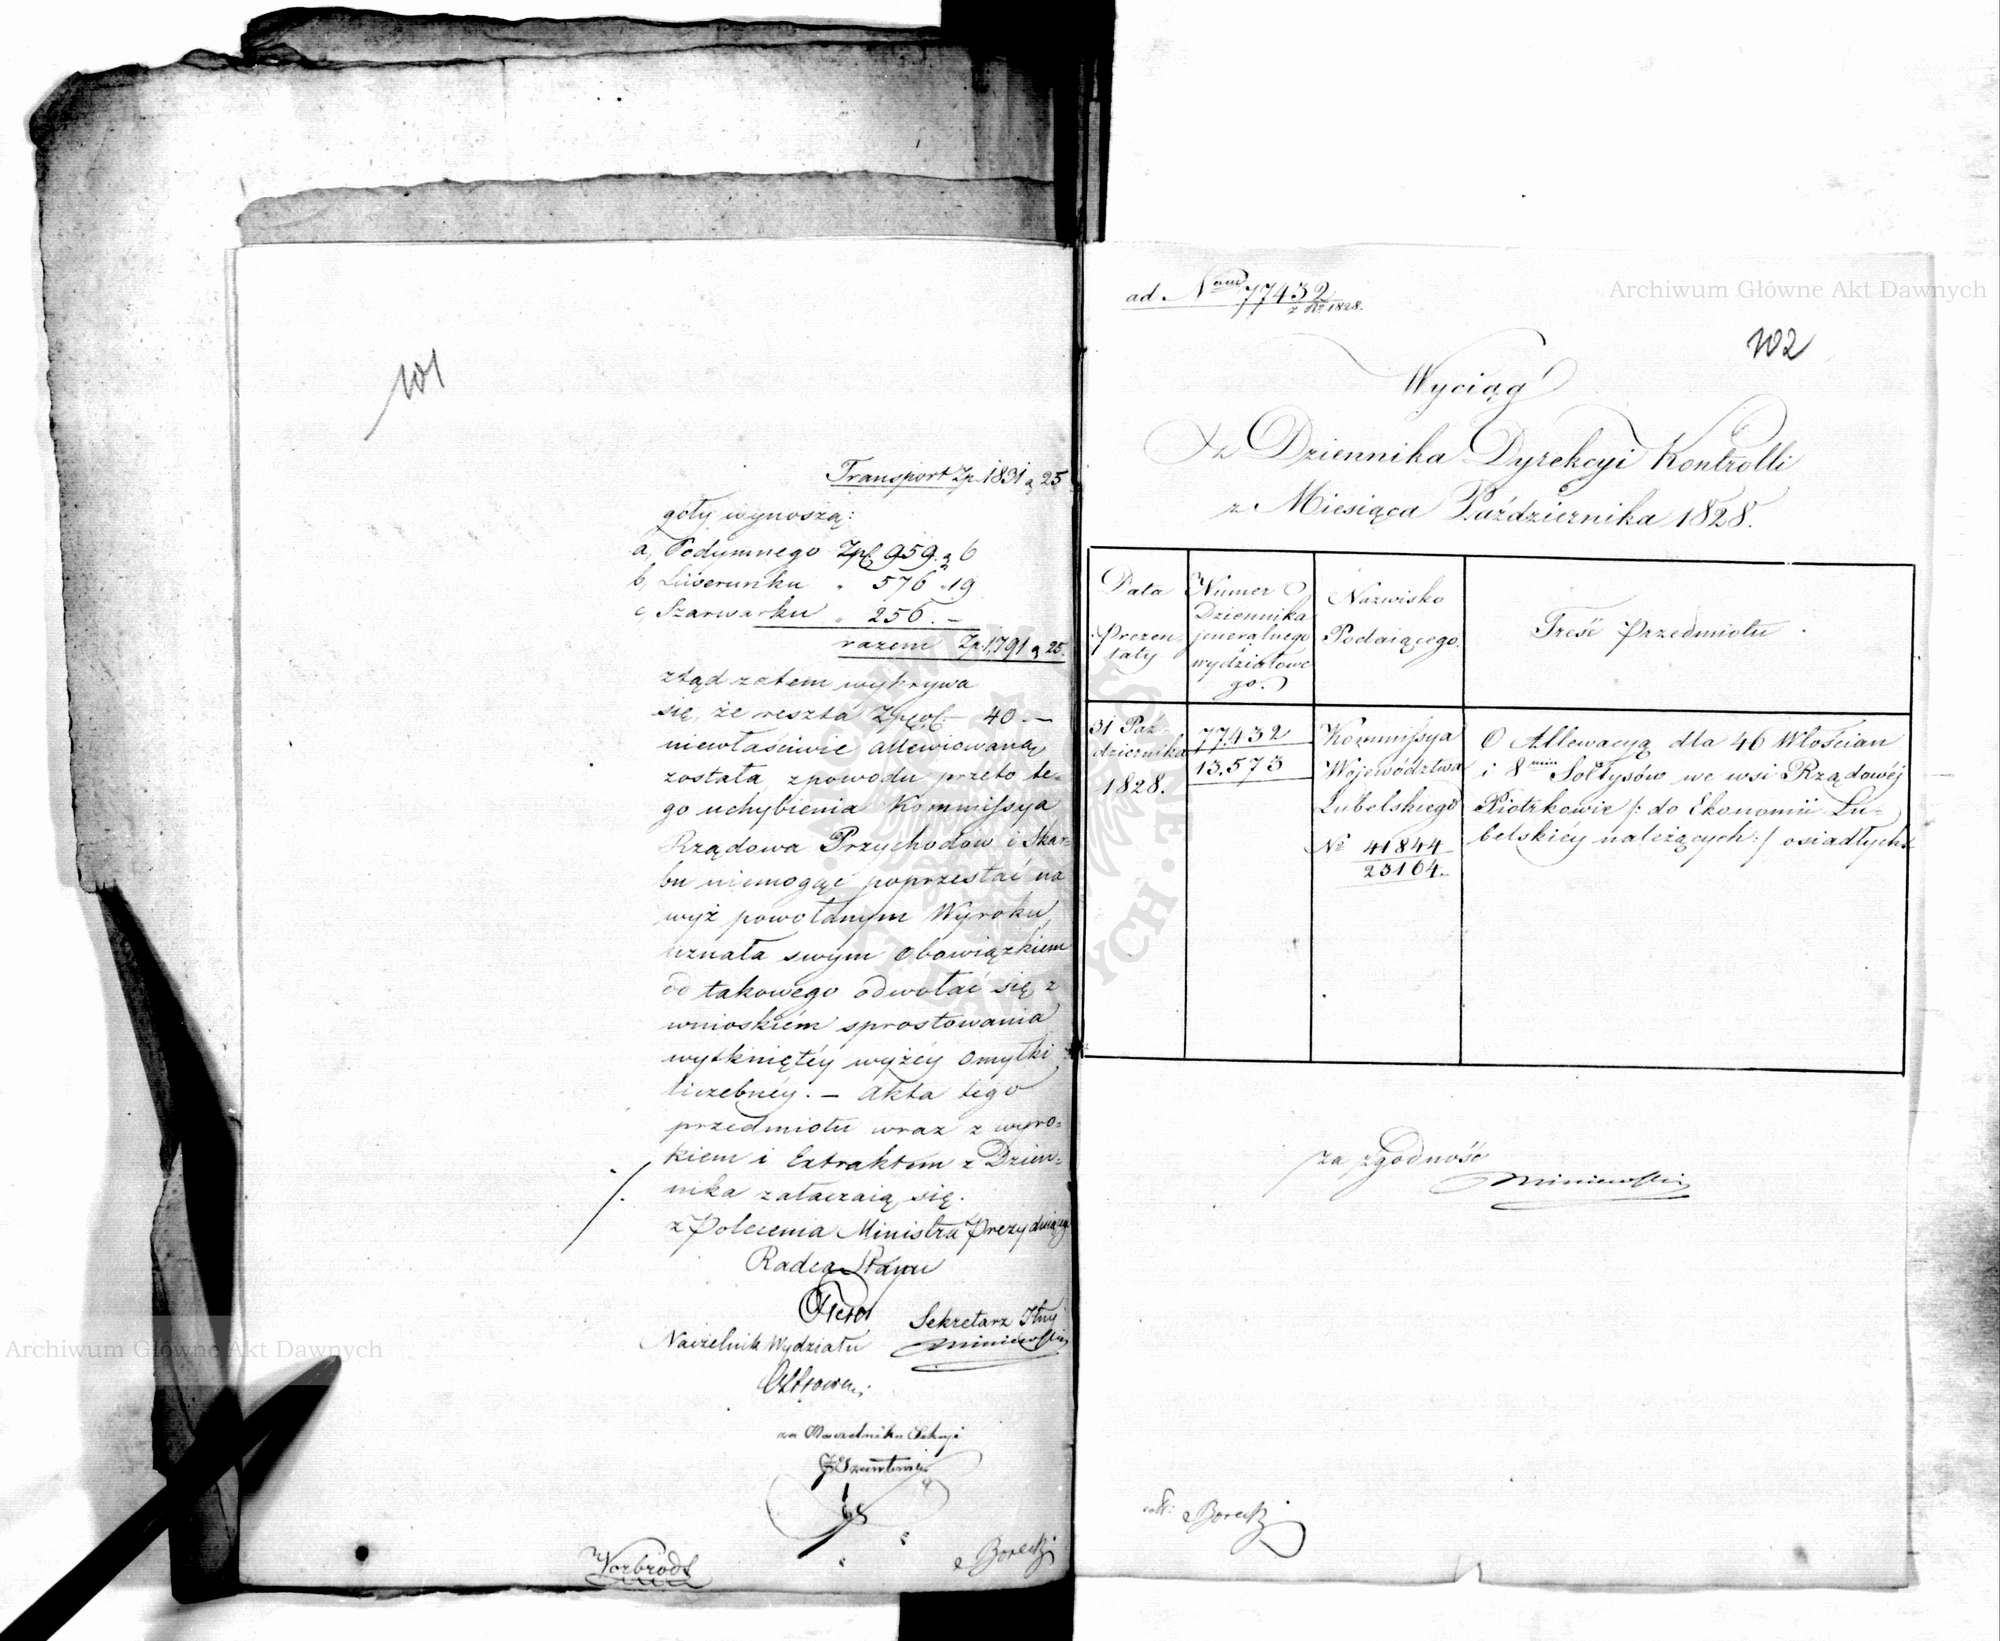 101
Transport Zp. 1831 g 25
goły wynoszą:
a, Podymnego Zpf. 959. g 6
b, Liwerunku " 576 " 19
c, Szarwarku " 256. —
razem Zp. 1,791 g 25.
ztąd zatem wykrywa
się, że reszta Zpol. — 40. —
niewłaściwie allewiowaną
została zpowodu przeto te-
go uchybienia Kommissya
Rządowa Przychodów i Skar-
bu niemogąc poprzestać na
wyż powołanym Wyroku,
uznała swym obowiązkiem
od takowego odwołać się z
wnioskiem sprostowania
wytkniętéy wyżéy omyłki
liczebnéy. — Akta tego
przedmiotu wraz z wyro-
kiem i Extraktem z Dzien-
nika załączaią się.
z Polecenia Ministra Prezyduiącego
Radca Stanu
Sekretarz Jłny
Miniewski
Naczelnik Wydziału
za Naczelnika Sekcyi
Vorbrodt
Borecki
Archiwum Główne Akt Dawnych
ad Num 77432
z Rr. 1828.
Archiwum Główne Akt Dawnych
102
Wyciąg
Z Dziennika Dyrekcyi Kontrolli
z Miesiąca Października 1828.
Data Prezen-taty
Numer Dziennika jeneralnego wydziałowe-go.
Nazwisko Podaiącego.
Treść Przedmiotu.
31 Paź-dziernika 1828.
77.432
13.573
Kommissya Województwa Lubelskiego
No 41844
23164.
O Allewacyą dla 46 Włościan
i 8miu Sołtysów we wsi Rządowéj
Piotrkowie /: do Ekonomii Lu-
belskiey należących :/ osiadłych
za zgodność
Miniewski
coll: Borecki